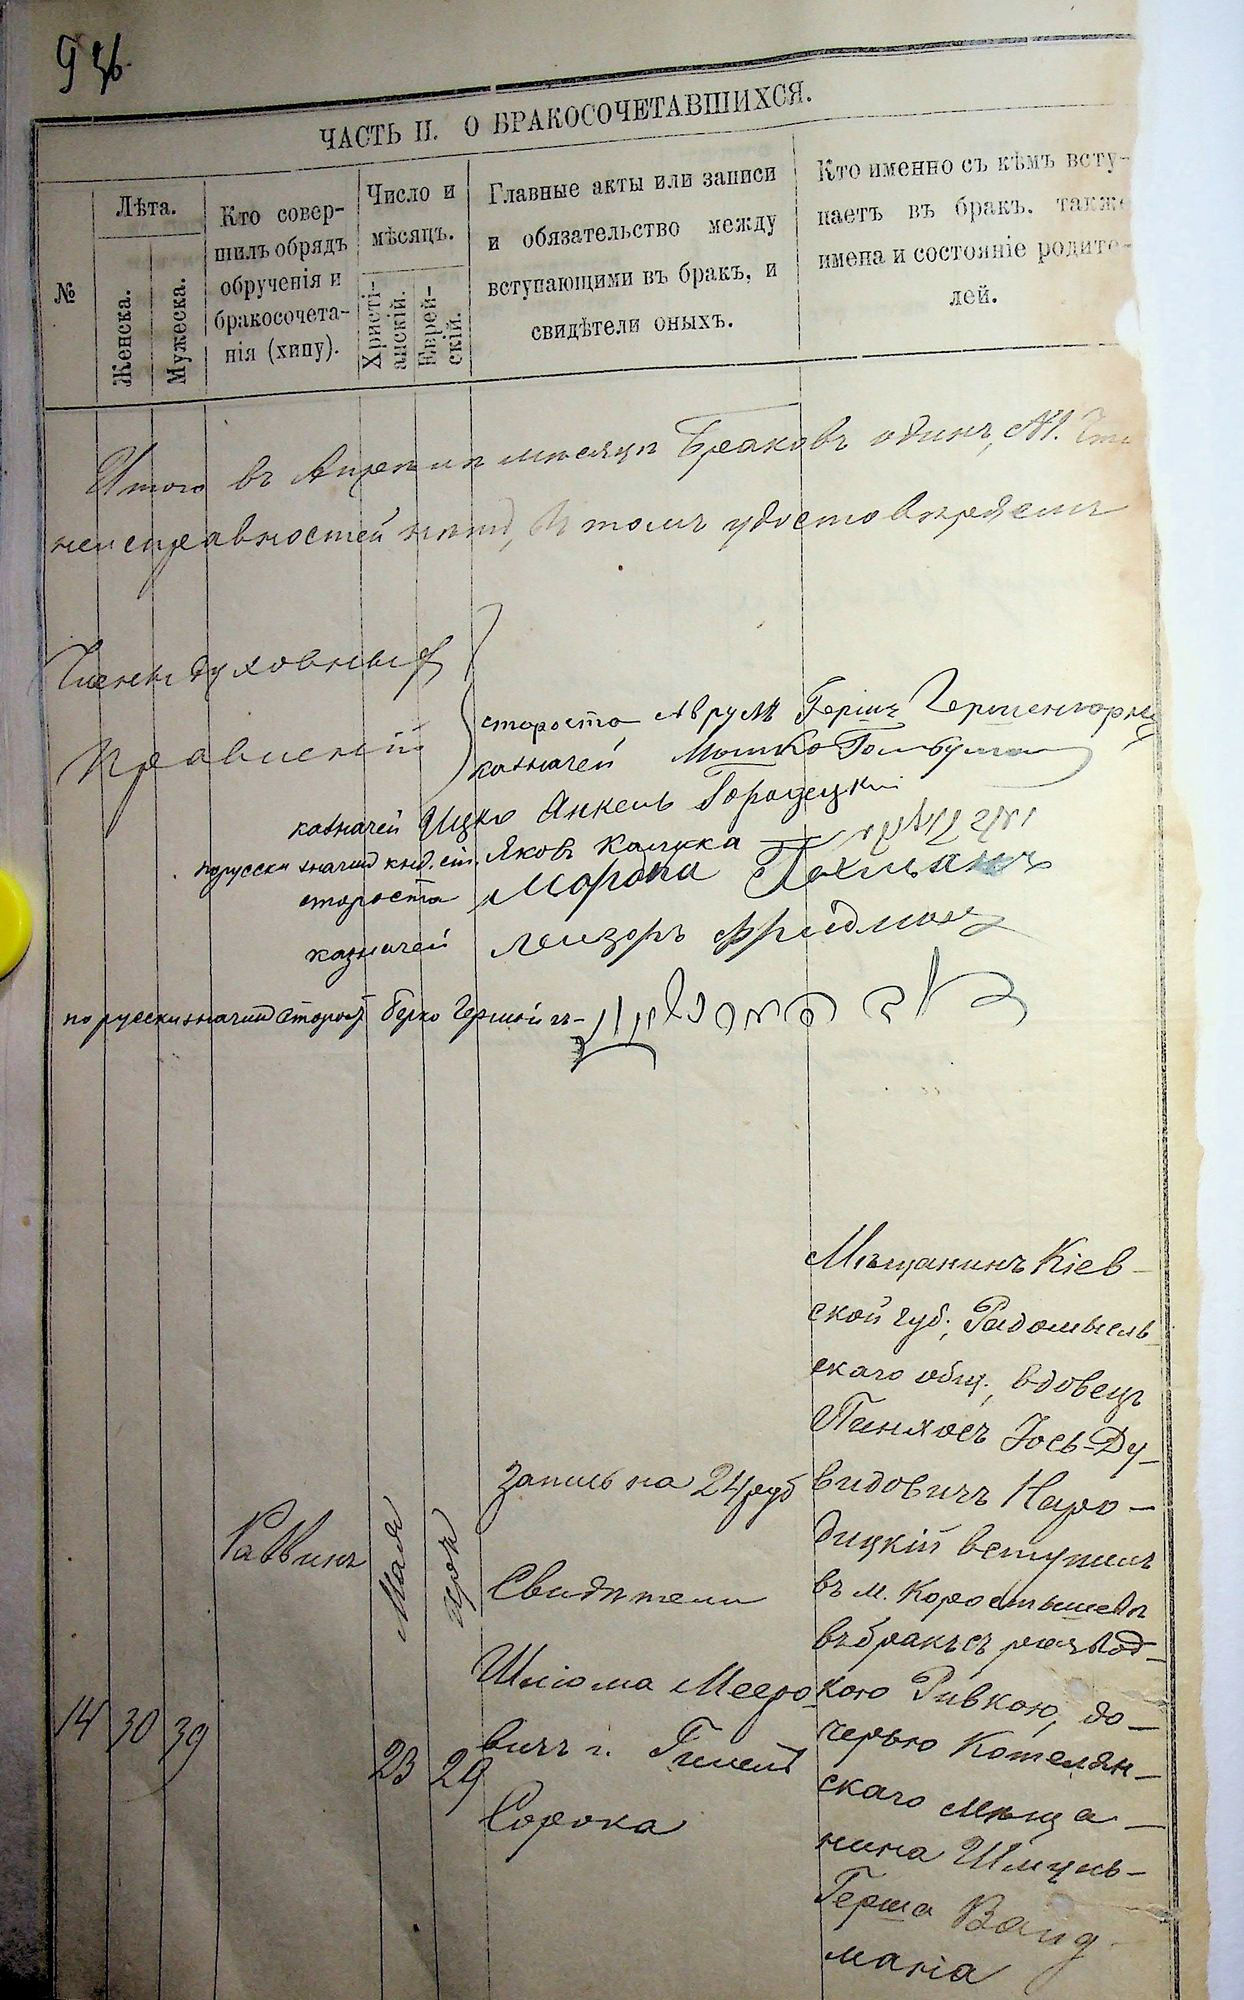 ЧАСТЬ II. О БРАКОСОЧЕТАВШИХСЯ.
№
Лѣта.
Женска.
Мужеска.
Кто совер-
шилъ обрядъ
обрученія и
бракосочета-
нія (хипу).
Число и
мѣсяцъ.
Христі-
анскій.
Еврей-
скій.
Главные акты или записи
и обязательство между
вступающими въ бракъ, и
свидѣтели оныхъ.
Кто именно съ кѣмъ всту-
паетъ въ бракъ. также
имена и состояніе родите-
лей.
Итого въ Апрелѣ мѣсяцѣ Браковъ одинъ, №1. Что
неисправностей нѣтъ, въ томъ удостовѣряемъ
Члены духовныхъ
Правленій
староста Аврумъ Гершъ
казначей Мошко
казначей Ицко Анкель Городецкій
порусски значит Яковъ Калика
староста Мордка Пехманъ
казначей Лейзоръ Фридманъ
по русски значит Старост Берко
14
30
39
Раввинъ
Мая
23
29
Запись на 24 руб
Свидѣтели
Шлiома Мееро-
вичъ г.
Сорока
Мѣщанинъ Кіев-
ской губ., Радомысль-
скаго общ., вдовецъ
Пинхосъ Іось-Ду-
видовичъ Наро-
дицкій вступилъ
въ м. Коростышевѣ
въ бракъ съ развод-
кою Ривкою, до-
черью Котелян-
скаго мѣща-
нина Шмуль-
Герша Вайд-
мана